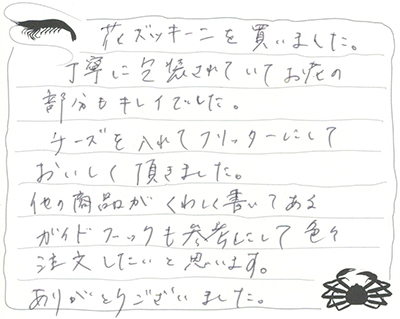 花ズッキーニを買いました。
丁寧に包装されていてお花の
部分もキレイでした。
チーズを入れてフリッターにして
おいしく頂きました。
他の商品がくわしく書いてある
ガイドブックも参考にして色々
注文したいと思います。
ありがとうございました。